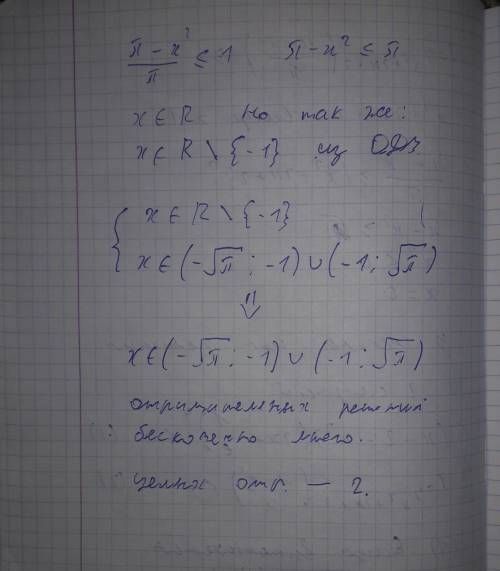 (π - x²)/π ≤ 1    π - x² ≤ π
x ∈ R   Но так же:
x ∈ R \ {-1}   из ОДЗ
{ x ∈ R \ {-1}
x ∈ (-√π; -1) ∪ (-1; √π)
⇓
x ∈ (-√π; -1) ∪ (-1; √π)
отрицательных решений
бесконечно много.
целых отр. — 2.